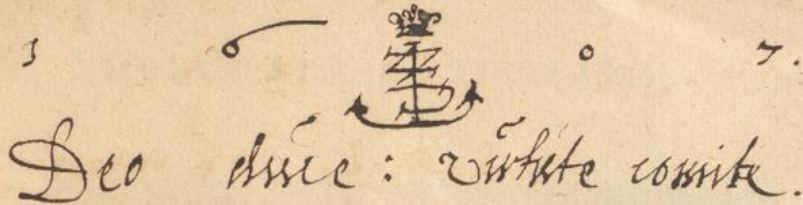 1 6 0 7.
Deo duce: virtute comite.